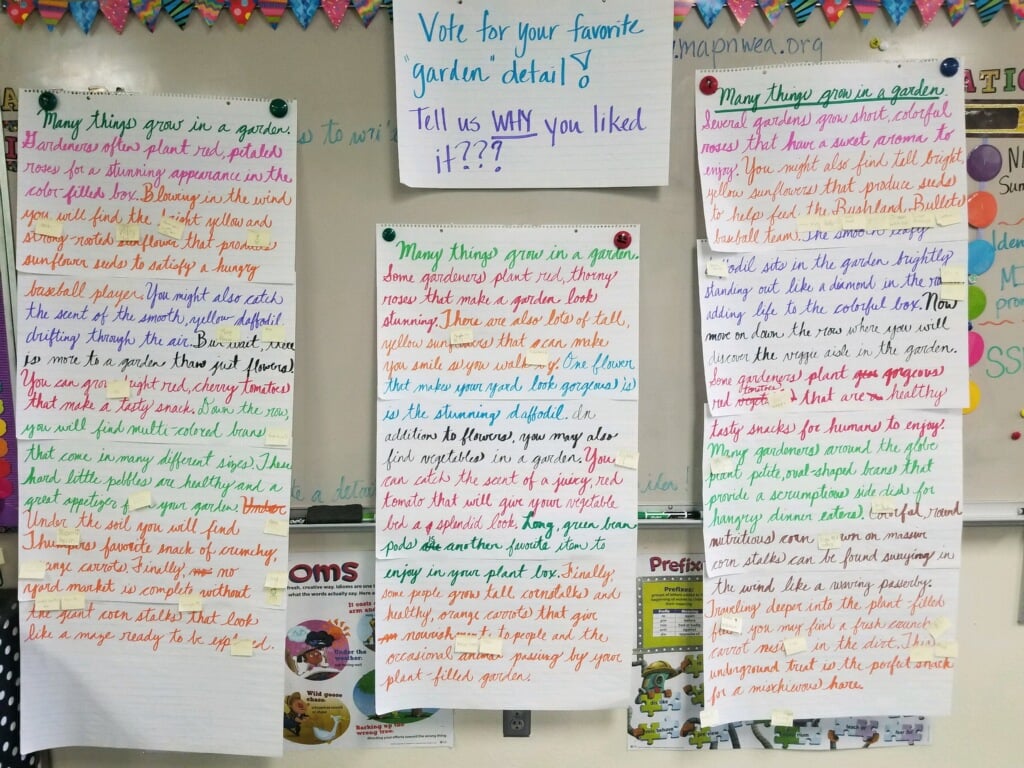 Vote for your favorite
"garden" detail!
Tell us WHY you liked
it???
.mapnwea.org
Many things grow in a garden.
Gardeners often plant red, petaled
roses for a stunning appearance in the
color-filled box. Blowing in the wind
you will find the bright yellow and
strong-rooted sunflower that produces
sunflower seeds to satisfy a hungry
baseball player. You might also catch
the scent of the smooth, yellow daffodil
drifting through the air. But wait, there
is more to a garden than just flowers!
You can grow bright red, cherry tomatoes
that make a tasty snack. Down the row,
you will find multi-colored beans
that come in many different sizes. These
hard little pebbles are healthy and a
great appetizer your garden. Under
Under the soil you will find
Thumpers favorite snack of crunchy,
orange carrots. Finally, no
yard market is complete without
the giant corn stalks that look
like a maze ready to be explored.
Many things grow in a garden.
Some gardeners plant red, thorny
roses that make a garden look
stunning. There are also lots of tall,
yellow sunflowers that can make
you smile as you walk by. One flower
that makes your yard look gorgeous is
is the stunning daffodil. In
addition to flowers, you may also
find vegetables in a garden. You
can catch the scent of a juicy, red
tomato that will give your vegetable
bed a splendid look. Long, green bean
pods another favorite item to
enjoy in your plant box. Finally,
some people grow tall cornstalks and
healthy, orange carrots that give
nourishment to people and the
occasional animal passing by your
plant-filled garden.
Many things grow in a garden.
Several gardens grow short, colorful
roses that have a sweet aroma to
enjoy! You might also find tall bright,
yellow sunflowers that produce seeds
to help feed the Rushland Bullets
baseball team. The smooth leafy
daffodil sits in the garden brightly
standing out like a diamond in the row
adding life to the colorful box. Now
move on down the row where you will
discover the veggie aisle in the garden.
Some gardeners plant gorgeous
red tomatoes that are healthy
tasty snacks for humans to enjoy!
Many gardeners around the globe
plant petite, oval-shaped beans that
provide a scrumptious side dish for
hungry dinner eaters! Colorful, round
nutritious corn grown on massive
corn stalks can be found swaying in
the wind like a waving passerby.
Traveling deeper into the plant-filled
you may find a fresh crunchy
carrot in the dirt. This
underground treat is the perfect snack
for a mischievous hare.
OMS
Under the
weather.
Wild goose
chase.
Barking up the
wrong tree.
Prefix
Prefixes: